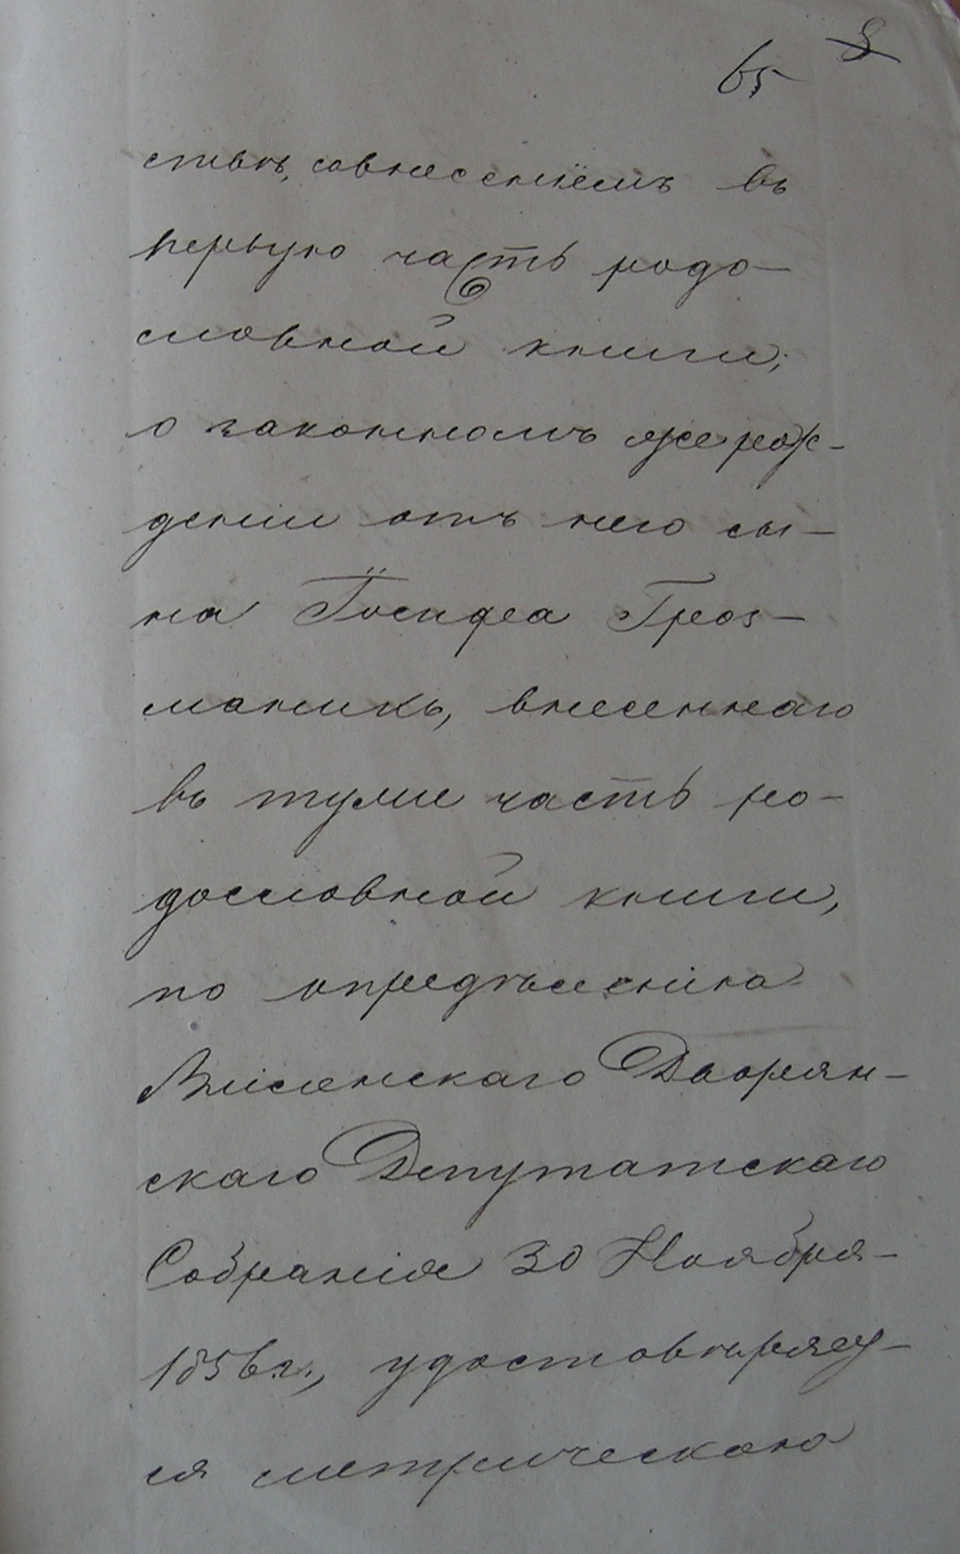 65 8
ствѣ, совнесеніемъ въ
первую часть родо-
словной книги;
о законномъ же рож-
деніи отъ него сы-
на Іосифа Гроз-
маникъ, внесеннаго
въ туже часть ро-
дословной книги,
по опредѣленію
Виленскаго Дворян-
скаго Депутатскаго
Собранія 30 Ноября
1856 г., удостовѣряет-
ся метрическою